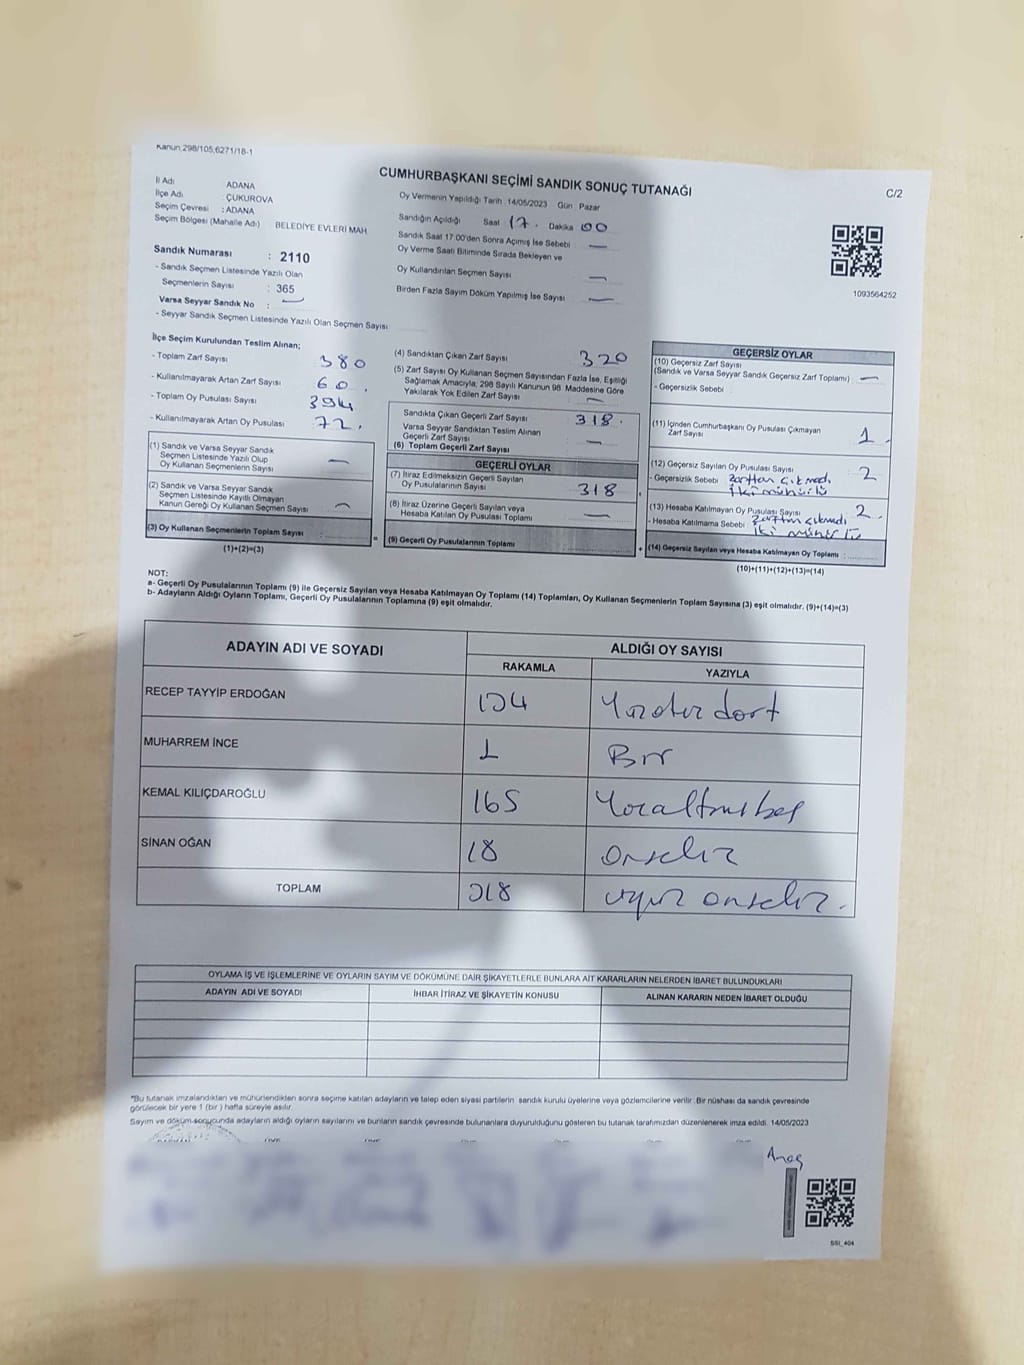 Kanun,298/105,6271/18-1
CUMHURBAŞKANI SEÇİMİ SANDIK SONUÇ TUTANAĞI
C/2
İl Adı ADANA
İlçe Adı : ÇUKUROVA
Seçim Çevresi : ADANA
Seçim Bölgesi (Mahalle Adı) BELEDİYE EVLERİ MAH
Sandık Numarası : 2110
- Sandık Seçmen Listesinde Yazılı Olan
Seçmenlerin Sayısı : 365
Varsa Seyyar Sandık No : —
- Seyyar Sandık Seçmen Listesinde Yazılı Olan Seçmen Sayısı
Oy Vermenin Yapıldığı Tarih 14/05/2023 Gün Pazar
Sandığın Açıldığı Saat 17. Dakika 00
Sandık Saat 17.00'den Sonra Açımış İse Sebebi —
Oy Verme Saati Bitiminde Sırada Bekleyen ve
Oy Kullandırılan Seçmen Sayısı —
Birden Fazla Sayım Döküm Yapılmış İse Sayısı —
1093564252
İlçe Seçim Kurulundan Teslim Alınan;
- Toplam Zarf Sayısı 380
- Kullanılmayarak Artan Zarf Sayısı 60.
- Toplam Oy Pusulası Sayısı 394
- Kullanılmayarak Artan Oy Pusulası 72.
(1) Sandık ve Varsa Seyyar Sandık
Seçmen Listesinde Yazılı Olup
Oy Kullanan Seçmenlerin Sayısı —
(2) Sandık ve Varsa Seyyar Sandık
Seçmen Listesinde Kayıtlı Olmayan
Kanun Gereği Oy Kullanan Seçmen Sayısı —
(3) Oy Kullanan Seçmenlerin Toplam Sayısı
(1)+(2)=(3)
(4) Sandıktan Çıkan Zarf Sayısı 320
(5) Zarf Sayısı Oy Kullanan Seçmen Sayısından Fazla İse, Eşitliği
Sağlamak Amacıyla, 298 Sayılı Kanunun 98. Maddesine Göre
Yakılarak Yok Edilen Zarf Sayısı —
Sandıkta Çıkan Geçerli Zarf Sayısı 318.
Varsa Seyyar Sandıktan Teslim Alınan
Geçerli Zarf Sayısı —
(6) Toplam Geçerli Zarf Sayısı
GEÇERLİ OYLAR
(7) İtiraz Edilmeksizin Geçerli Sayılan
Oy Pusulalarının Sayısı 318
(8) İtiraz Üzerine Geçerli Sayılan veya
Hesaba Katılan Oy Pusulası Toplamı —
(9) Geçerli Oy Pusulalarının Toplamı
GEÇERSİZ OYLAR
(10) Geçersiz Zarf Sayısı
(Sandık ve Varsa Seyyar Sandık Geçersiz Zarf Toplamı) —
- Geçersizlik Sebebi
(11) İçinden Cumhurbaşkanı Oy Pusulası Çıkmayan
Zarf Sayısı 1.
(12) Geçersiz Sayılan Oy Pusulası Sayısı 2
- Geçersizlik Sebebi zarftan çıkmadı
iki mühürlü
(13) Hesaba Katılmayan Oy Pusulası Sayısı 2.
- Hesaba Katılmama Sebebi zarftan çıkmadı
iki mühürlü
(14) Geçersiz Sayılan veya Hesaba Katılmayan Oy Toplamı :
(10)+(11)+(12)+(13)=(14)
NOT:
a- Geçerli Oy Pusulalarının Toplamı (9) ile Geçersiz Sayılan veya Hesaba Katılmayan Oy Toplamı (14) Toplamları, Oy Kullanan Seçmenlerin Toplam Sayısına (3) eşit olmalıdır. (9)+(14)=(3)
b- Adayların Aldığı Oyların Toplamı, Geçerli Oy Pusulalarının Toplamına (9) eşit olmalıdır.
ADAYIN ADI VE SOYADI
ALDIĞI OY SAYISI
RAKAMLA YAZIYLA
RECEP TAYYİP ERDOĞAN 134 Yüzotuz dört
MUHARREM İNCE 1 Bir
KEMAL KILIÇDAROĞLU 165 Yüzaltmışbeş
SİNAN OĞAN 18 onsekiz
TOPLAM 318 üçyüz onsekiz.
OYLAMA İŞ VE İŞLEMLERİNE VE OYLARIN SAYIM VE DÖKÜMÜNE DAİR ŞİKAYETLERLE BUNLARA AİT KARARLARIN NELERDEN İBARET BULUNDUKLARI
ADAYIN ADI VE SOYADI İHBAR İTİRAZ VE ŞİKAYETİN KONUSU ALINAN KARARIN NEDEN İBARET OLDUĞU
"Bu tutanak imzalandıktan ve mühürlendikten sonra seçime katılan adayların ve talep eden siyasi partilerin sandık kurulu üyelerine veya gözlemcilerine verilir. Bir nüshası da sandık çevresinde
görülecek bir yere 1 (bir) hafta süreyle asılır.
Sayım ve döküm sonucunda adayların aldığı oyların sayılarını ve bunların sandık çevresinde bulunanlara duyurulduğunu gösteren bu tutanak tarafımızdan düzenlenerek imza edildi. 14/05/2023
SSI_404